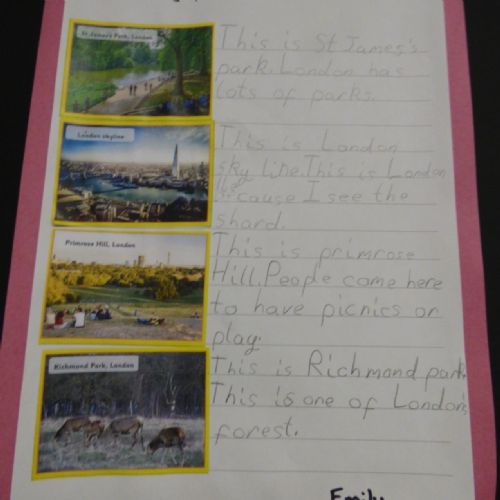 St James's Park, London
This is St James's
park. London has
lots of parks.
London skyline
This is London
sky line. This is London
because I see the
shard.
Primrose Hill, London
This is primrose
Hill. People come here
to have picnics or
play.
Richmond Park, London
This is Richmond park.
This is one of London's
forest.
Emily